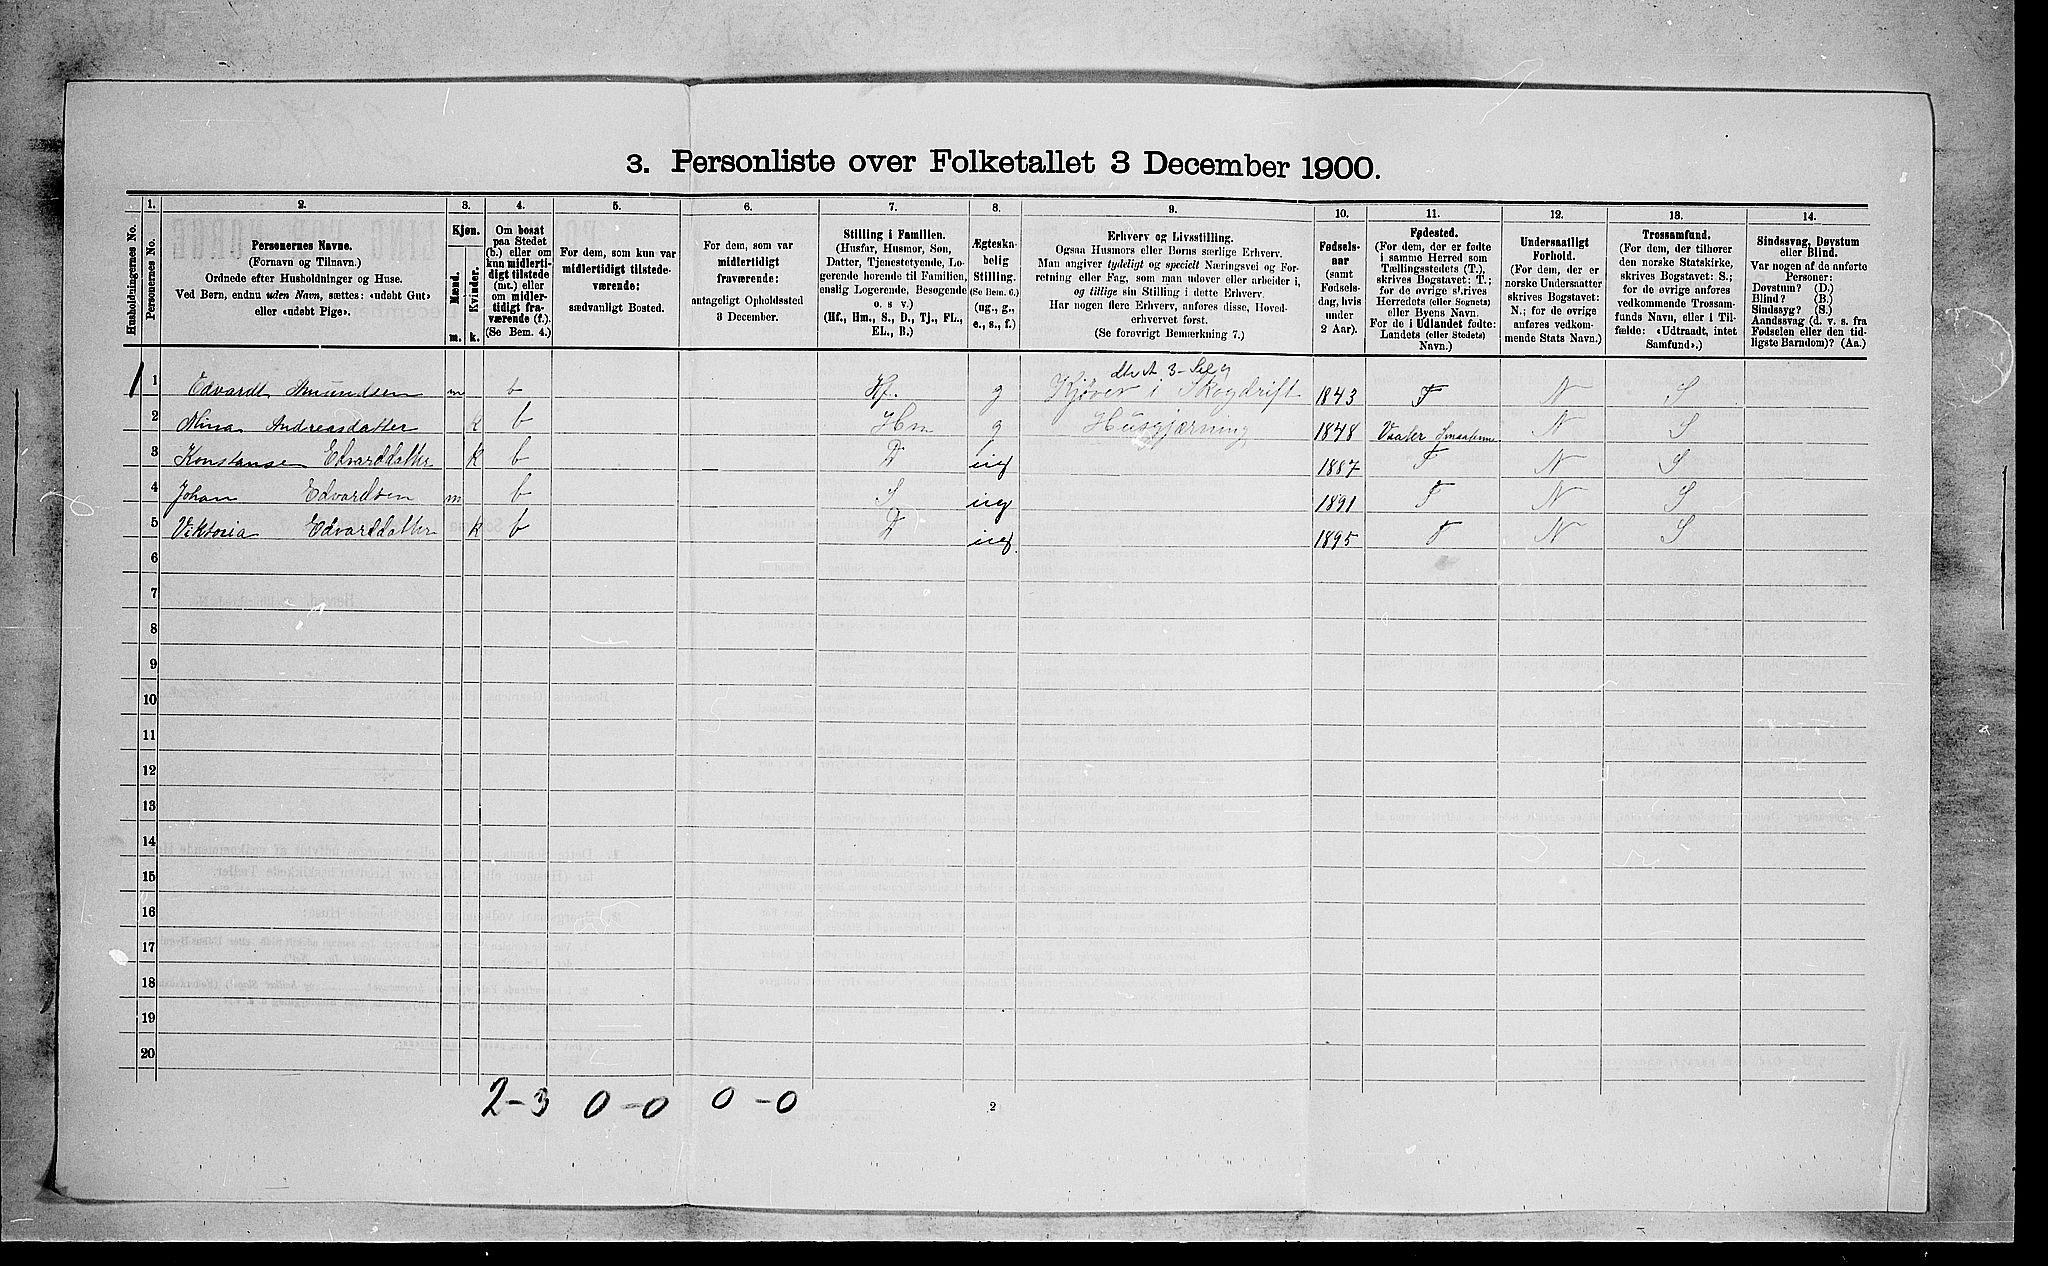 3. Personliste over Folketallet 3 December 1900.
Husholdningernes No.
1.
Personernes No.
2.
Personernes Navne.
(Fornavn og Tilnavn.)
Ordnede efter Husholdninger og Huse.
Ved Børn, endnu uden Navn, sættes: «udøbt Gut»
eller «udøbt Pige».
3.
Kjøn.
Mænd.
Kvinder.
m. k.
4.
Om bosat
paa Stedet
(b.) eller om
kun midlerti-
digt tilstede
(mt.) eller
om midler-
tidigt fra-
værende (f.)
(Se Bem. 4.)
5.
For dem, som kun var
midlertidigt tilstede-
værende:
sædvanligt Bosted.
6.
For dem, som var
midlertidigt
fraværende:
antageligt Opholdssted
3 December.
7.
Stilling i Familien.
(Husfar, Husmor, Søn,
Datter, Tjenestetyende, Lo-
gerende hørende til Familien,
enslig Logerende, Besøgende
o. s v.)
(Hf., Hm., S., D., Tj., FL.,
EL., B.)
8.
Ægteska-
belig
Stilling.
(Se Bem. 6.)
(ug., g.,
e., s., f.)
9.
Erhverv og Livsstilling.
Ogsaa Husmors eller Børns særlige Erhverv.
Man angiver tydeligt og specielt Næringsvei og For-
retning eller Fag, som man udøver eller arbeider i,
og tillige sin Stilling i dette Erhverv.
Har nogen flere Erhverv, anføres disse, Hoved-
erhvervet først.
(Se forøvrigt Bemærkning 7.)
10.
Fødsels-
aar
(samt
Fødsels-
dag, hvis
under
2 Aar).
11.
Fødested.
(For dem, der er fødte
i samme Herred som
Tællingsstedets (T.),
skrives Bogstavet: T.;
for de øvrige skrives
Herredets (eller Sognets)
eller Byens Navn.
For de i Udlandet fødte:
Landets (eller Stedets)
Navn.)
12.
Undersaatligt
Forhold.
(For dem, der er
norske Undersaatter
skrives Bogstavet:
N.; for de øvrige
anføres vedkom-
mende Stats Navn.)
13.
Trossamfund.
(For dem, der tilhører
den norske Statskirke,
skrives Bogstavet: S.;
for de øvrige anføres
vedkommende Trossam-
funds Navn, eller i Til-
fælde: «Udtraadt, intet
Samfund».)
14.
Sindssvag, Døvstum
eller Blind.
Var nogen af de anførte
Personer:
Døvstum? (D.)
Blind? (B.)
Sindssyg? (S.)
Aandssvag (d. v. s. fra
Fødselen eller den tid-
ligste Barndom)? (Aa.)
1 1 Edvardt Amundsen m b Hf. g Kjører i Skogdrift 1843 T N S
2 Mina Andreasdatter k b Hm g Husgjærning 1848 Vaaler Smaalenene N S
3 Konstanse Edvarddatter k b D ug 1887 T N S
4 Johan Edvardsen m b S ug 1891 T N S
5 Viktoria Edvarddatter k b D ug 1895 T N S
6
7
8
9
10
11
12
13
14
15
16
17
18
19
20
2-3 0-0 0-0
2